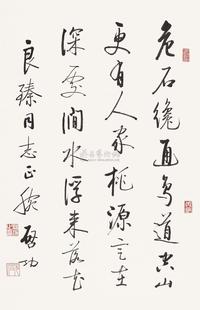 危石纔通鳥道空山
更有人家桃源定在
深處澗水浮来落花
良臻同志正腕 啓功